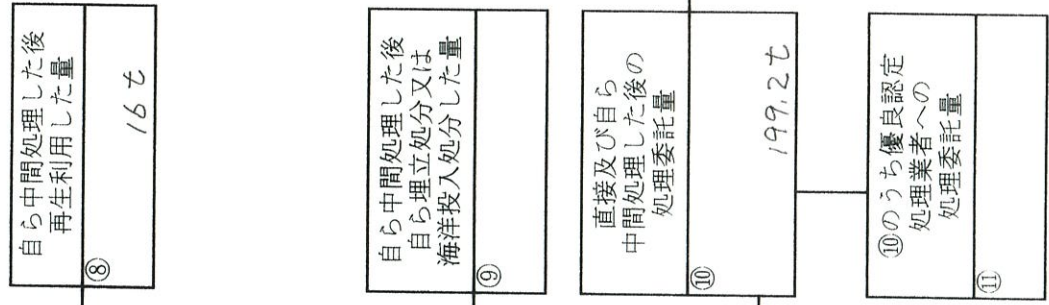 自ら中間処理した後
再生利用した量
⑧
16t
自ら中間処理した後
自ら埋立処分又は
海洋投入処分した量
⑨
直接及び自ら
中間処理した後の
処理委託量
⑩
199.2t
⑩のうち優良認定
処理業者への
処理委託量
⑪